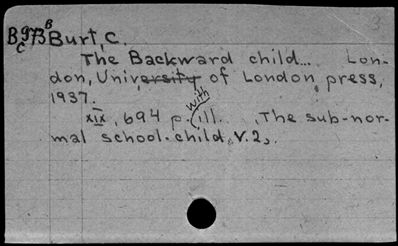 3
B973B Burt, C.
C
The Backward child... Lon-
don, University of London press,
1937.
xix, 694 p. with ill. The sub-nor-
mal school-child, V.2,.